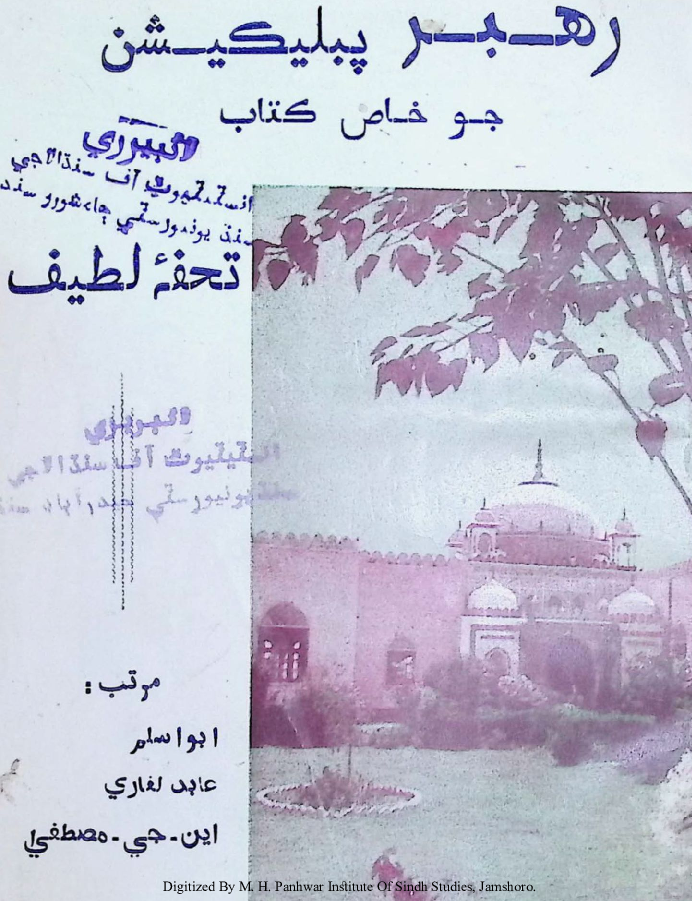 رهبر پبليڪيشن
جو خاص ڪتاب
لائبريري
انسٽيٽيوٽ آف سنڌالاجي
سنڌ يونيورسٽي ڄامشورو سنڌ
تحفۂ لطيف
لائبريري
انسٽيٽيوٽ آف سنڌالاجي
سنڌ يونيورسٽي حيدرآباد سنڌ
مرتب:
ابو اسلم
عابد لغاري
اين-جي-مصطفيٰ
Digitized By M. H. Panhwar Institute Of Sindh Studies, Jamshoro.